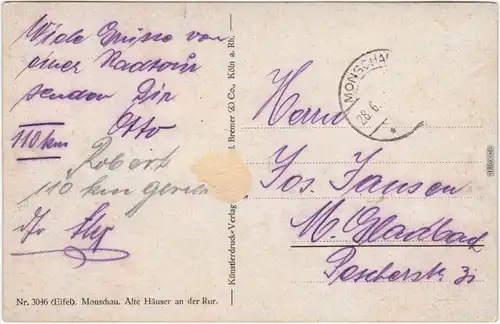 Viele Grüsse von
einer Radtour
senden Dir
Otto
110 km
Robert
110 km
Nr. 3046 (Eifel). Monschau. Alte Häuser an der Rur.
Künstlerdruck-Verlag
Bremer & Co., Köln a. Rh.
MONSCHAU
28.6.
Herrn
Jos. Jansen
M. Gladbach